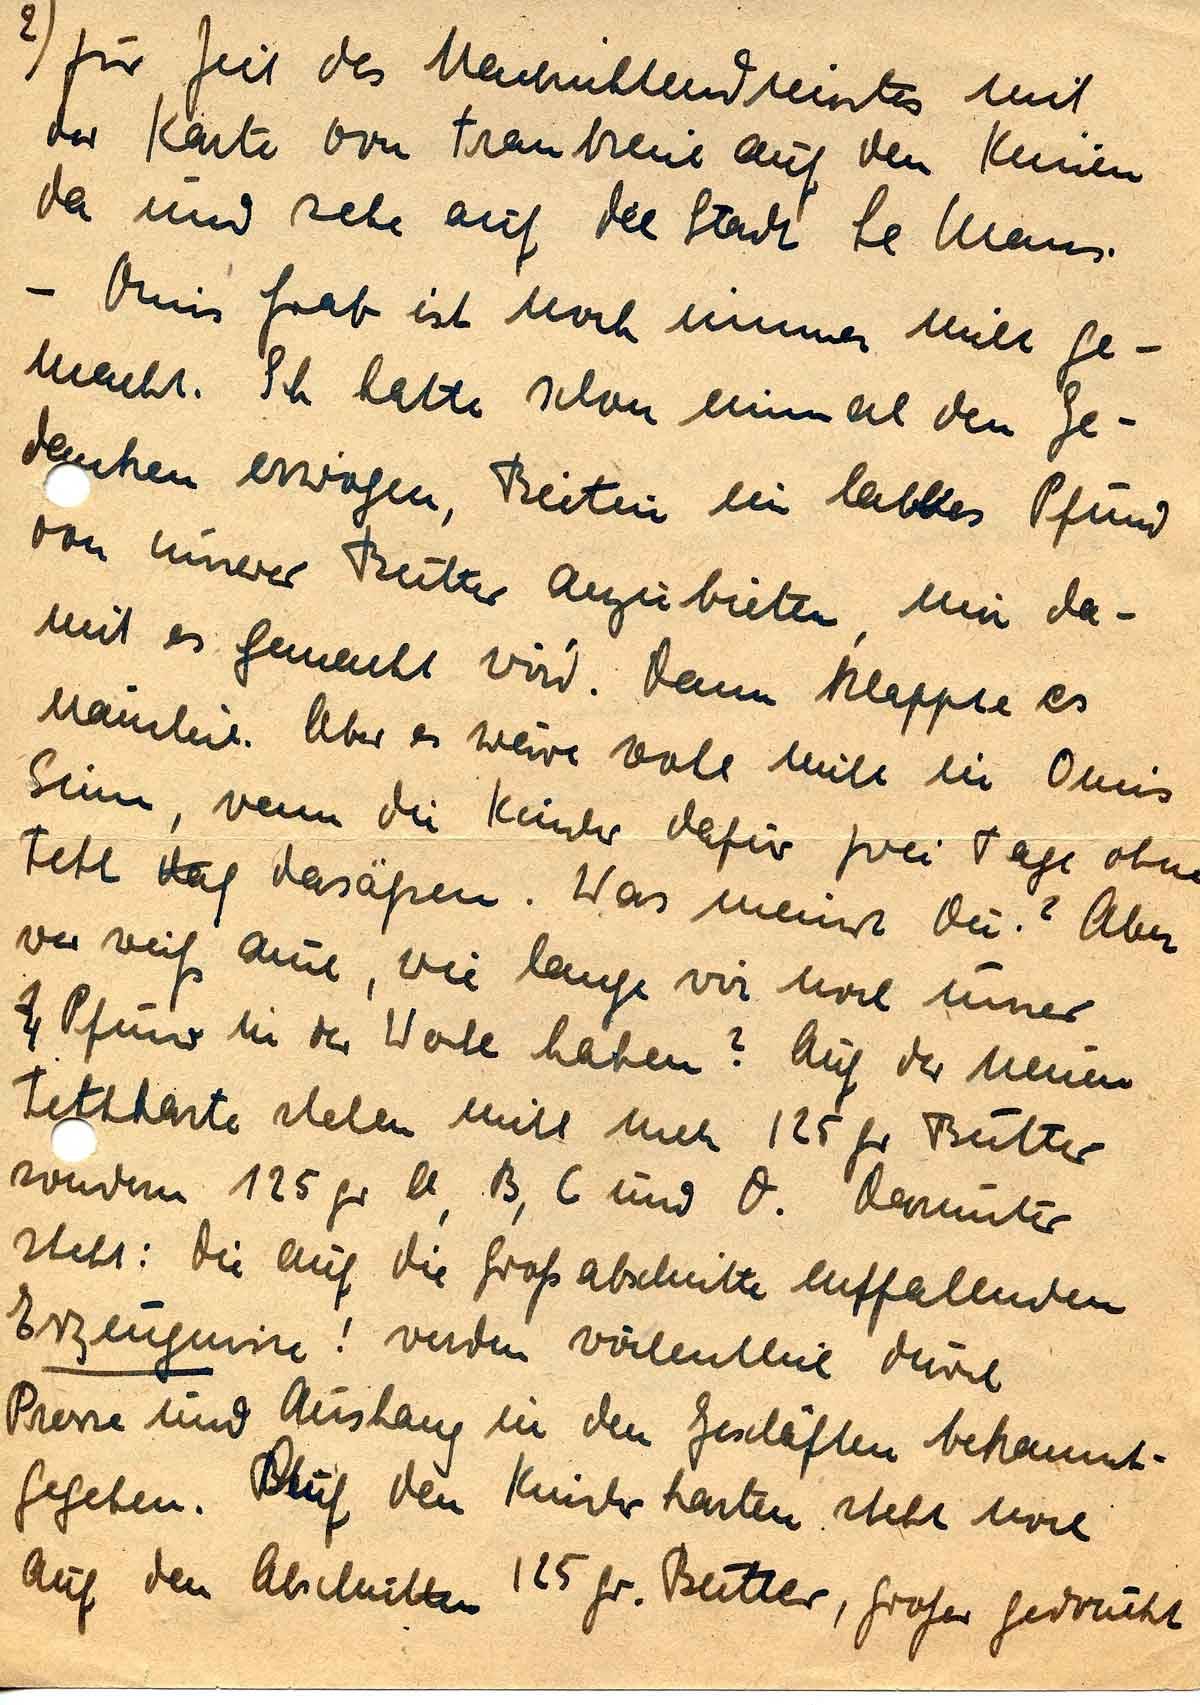 2) zur Zeit des Nachrichtendienstes mit
der Karte von Frankreich auf den Knien
da und sehe auf die Stadt Le Mans.
- Omis Grab ist noch immer nicht ge-
macht. Ich hatte schon einmal den Ge-
danken erwogen, Breitin ein halbes Pfund
von unserer Butter anzubieten, nur da-
mit es gemacht wird. Dann klappte es
nämlich. Aber es wäre wohl nicht in Omis
Sinn, wenn die Kinder dafür zwei Tage ohne
Fett dasäßen. Was meinst Du? Aber
wer weiß auch, wie lange wir noch unser
1/4 Pfund in der Woche haben? Auf der neuen
Fettkarte stehen nicht mehr 125 gr Butter
sondern 125 gr A, B, C und D. Darunter
steht: Die auf die Großabschnitte entfallenden
Erzeugnisse! werden wöchentlich durch
Presse und Aushang in den Geschäften bekannt-
gegeben. Auf den Kinderkarten steht noch
auf den Abschnitten 125 gr. Butter, großer gedruckt